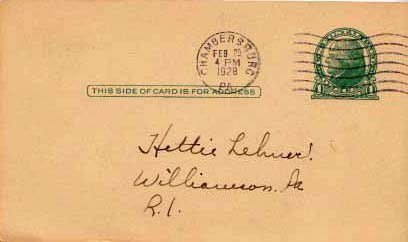 CHAMBERSBURG
FEB 25
4 PM
1928
PA.
THIS SIDE OF CARD IS FOR ADDRESS
1 1
Hettie Lehner!
Williamson. Pa
R. 1.